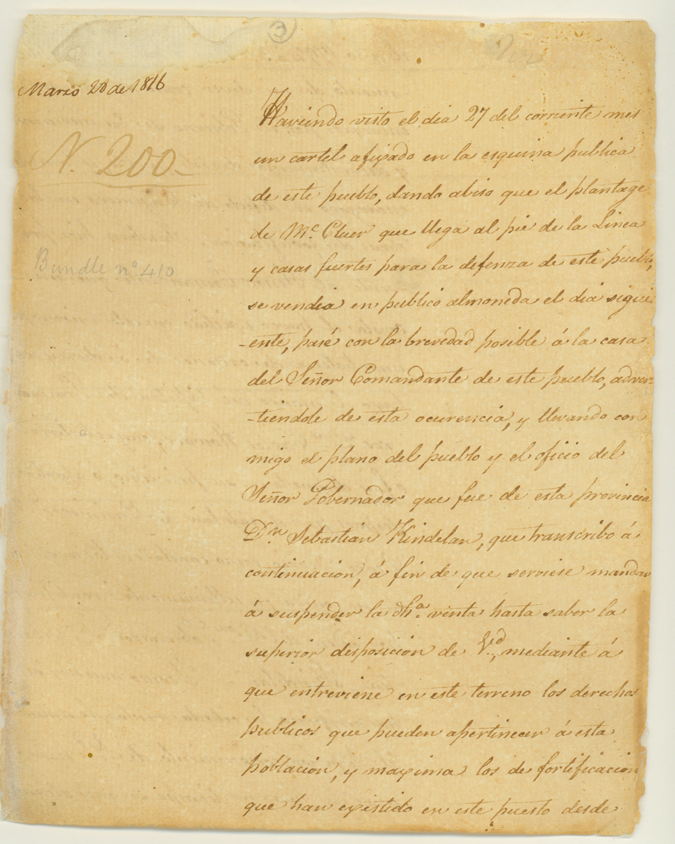 3
Marzo 28 de 1816
N. 200.
Bundle nº 410
Haviendo visto el dia 27 del corriente mes
un cartel afixado en la esquina publica
de este pueblo, dando abiso que el plantage
de Mc. Cluer que llega al pie de la Linea
y casas fuertes para la defenza de este pueblo,
se vendia en publico almoneda el dia sigui
-ente, pasé con la brevedad posible á la casa
del Señor Comandante de este pueblo, adver
-tiendole de esta ocurencia, y llevando con
migo el plano del pueblo y el oficio del
Señor Gobernador que fue de esta provincia
Dn. Sebastián Kindelan, que transcribo á
continuacion, á fin de que serviese mandar
á suspender la dha. venta hasta saber la
superior disposicion de Vd., mediante á
que entreviene en este terreno los derechos
publicos que pueden apertinecer á esta
poblacion, y maxima los de fortificacion
que han existido en este puesto desde